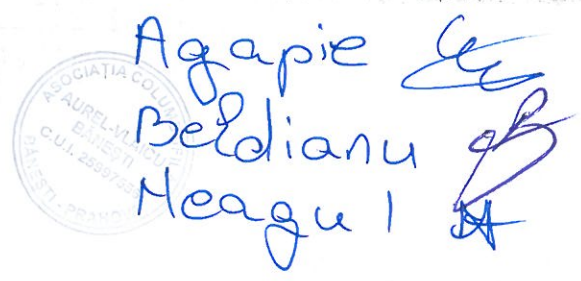 Agapie
Beldianu
Neagu I
ASOCIAȚIA COLUM
AUREL-VLAICU
BĂNEȘTI
C.U.I.
BĂNEȘTI - PRAHO